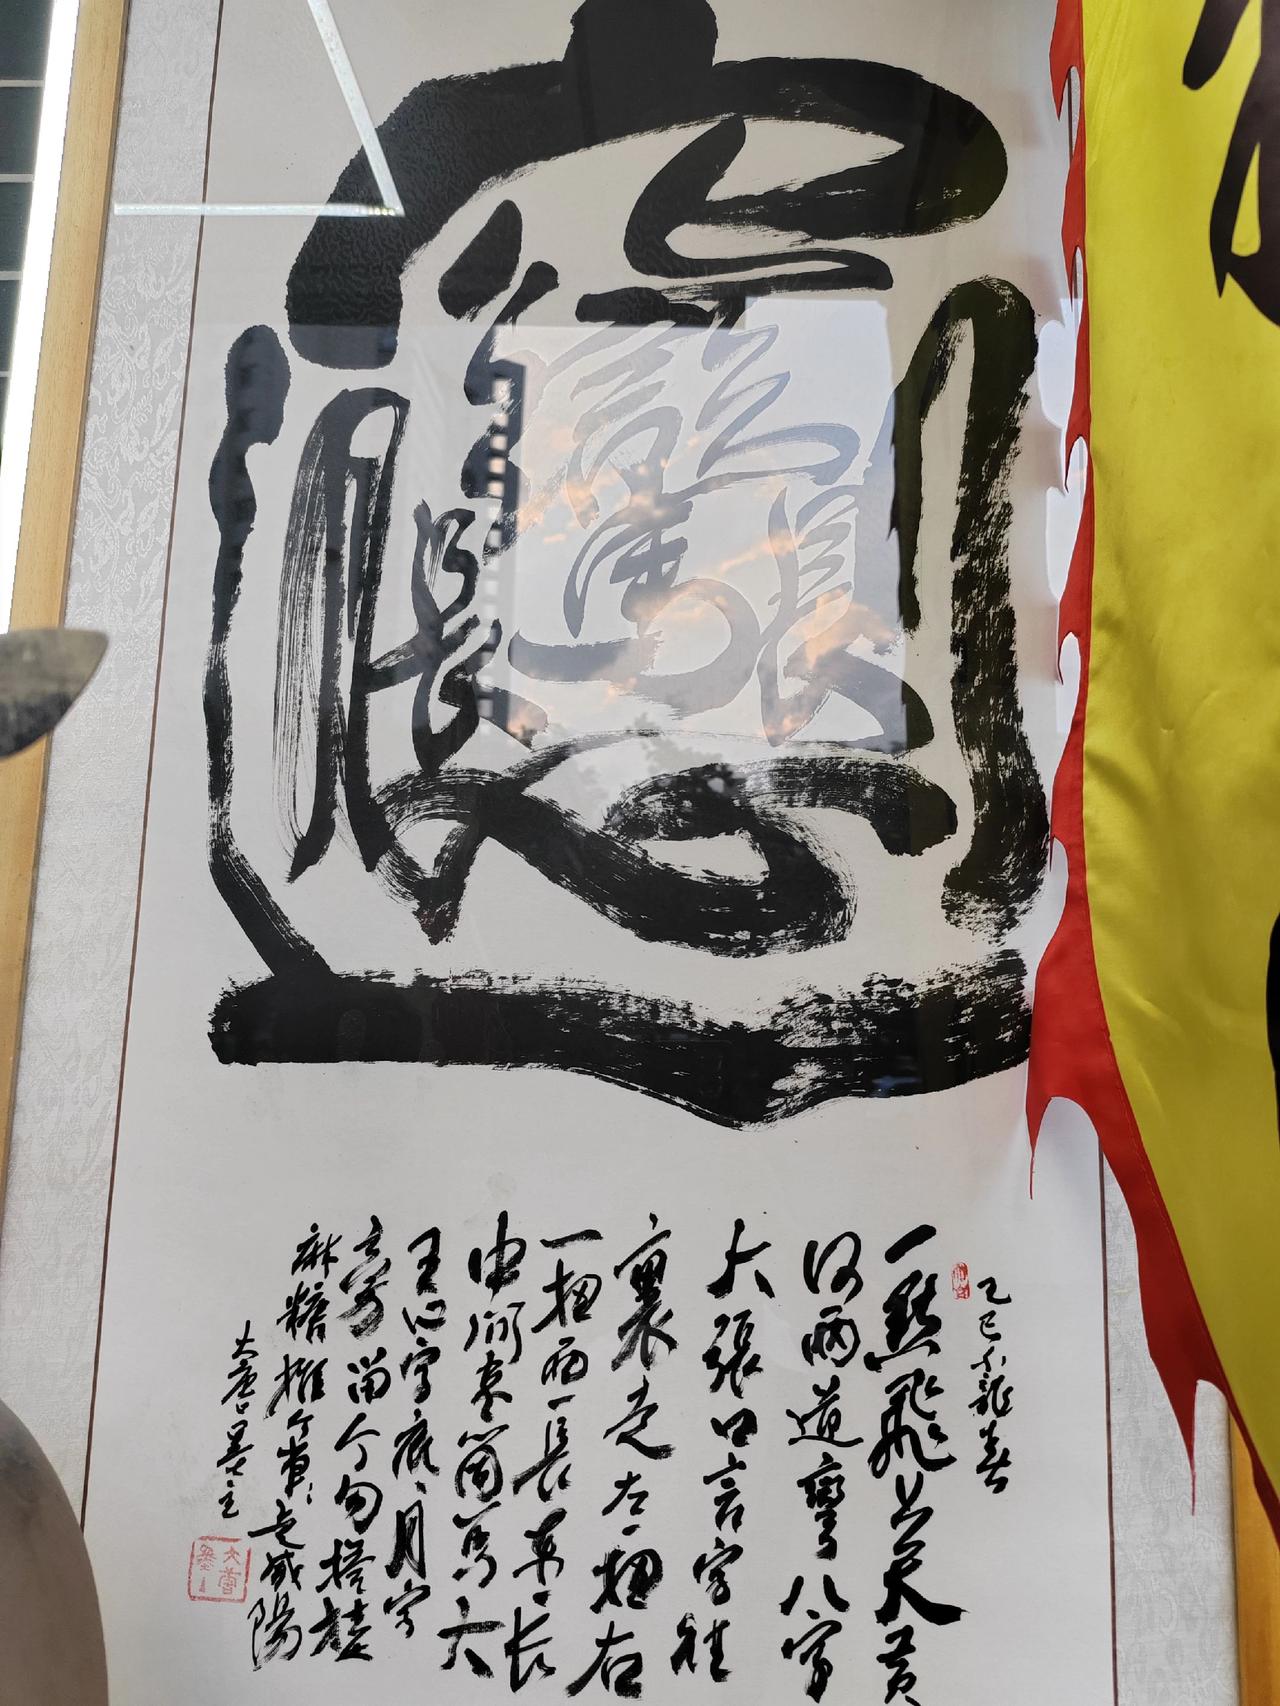 𰻞
乙巳小龍春
一點飛上天黄
河兩道彎八字
大張口言字往
裏走左一扭右
一扭西一長東一长
中间夹個馬大
王心字底月字
旁留个勾搭挂
麻糖推个車車走咸陽